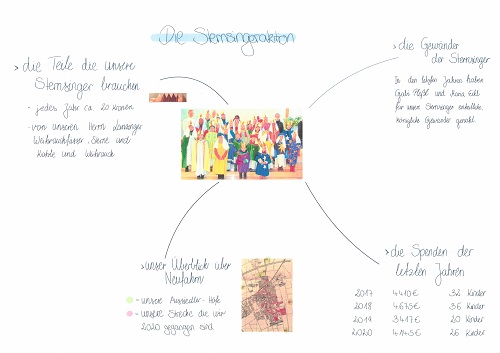 Die Sternsingeraktion
> die Teile die unsere
Sternsinger brauchen
- jedes Jahr ca. 20 Kronen
- von unseren Herrn
Weihrauchfässer, Sterne und
Kohle und Weihrauch
> die Gewänder
der Sternsinger
In den letzten Jahren haben
Gabi und
für unsere Sternsinger
königliche Gewänder genäht.
> unser Überblick über
Neufahrn
- unsere Aussiedler-Höfe
- unsere Strecke die wir
2020 gegangen sind
> die Spenden der
letzten Jahren
2017 4410€ 32 Kinder
2018 4675€ 36 Kinder
2019 3417€ 20 Kinder
2020 4145€ 26 Kinder